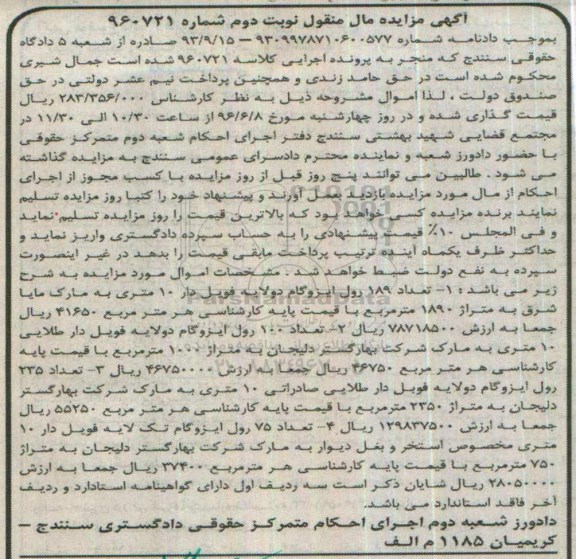 آگهی مزایده مال منقول نوبت دوم شماره ۹۶۰۷۲۱
بموجب دادنامه شماره ۹۳۰۹۹۷۸۷۱۰۶۰۰۵۷۷ – ۹۳/۹/۱۵ صادره از شعبه ۵ دادگاه
حقوقی سنندج که منجر به پرونده اجرایی کلاسه ۹۶۰۷۲۱ شده است جمال شیری
محکوم شده است در حق حامد زندی و همچنین پرداخت نیم عشر دولتی در حق
صندوق دولت ، لذا اموال مشروحه ذیل به نظر کارشناس ۲۸۳/۳۵۶/۰۰۰ ریال
قیمت گذاری شده و در روز چهارشنبه مورخ ۹۶/۶/۸ از ساعت ۱۰/۳۰ الی ۱۱/۳۰ در
مجتمع قضایی شهید بهشتی سنندج دفتر اجرای احکام شعبه دوم متمرکز حقوقی
با حضور دادورز شعبه و نماینده محترم دادسرای عمومی سنندج به مزایده گذاشته
می شود . طالبین می توانند پنج روز قبل از روز مزایده با کسب مجوز از اجرای
احکام از مال مورد مزایده بازدید بعمل آورند و پیشنهاد خود را کتبا روز مزایده تسلیم
نمایند برنده مزایده کسی خواهد بود که بالاترین قیمت را روز مزایده تسلیم نماید
و فی المجلس ۱۰٪ قیمت پیشنهادی را به حساب سپرده دادگستری واریز نماید و
حداکثر ظرف یکماه آینده ترتیب پرداخت مابقی قیمت را بدهد در غیر اینصورت
سپرده به نفع دولت ضبط خواهد شد . مشخصات اموال مورد مزایده به شرح
زیر می باشد : ۱- تعداد ۱۸۹ رول ایزوگام دولایه فویل دار ۱۰ متری به مارک مایا
شرق به متراژ ۱۸۹۰ مترمربع با قیمت پایه کارشناسی هر متر مربع ۴۱۶۵۰ ریال
جمعا به ارزش ۷۸۷۱۸۵۰۰ ریال ۲- تعداد ۱۰۰ رول ایزوگام دولایه فویل دار طلایی
۱۰ متری به مارک شرکت بهارگستر دلیجان به متراژ ۱۰۰۰ مترمربع با قیمت پایه
کارشناسی هر متر مربع ۴۶۷۵۰ ریال جمعا به ارزش ۴۶۷۵۰۰۰۰ ریال ۳- تعداد ۲۳۵
رول ایزوگام دولایه فویل دار طلایی صادراتی ۱۰ متری به مارک شرکت بهارگستر
دلیجان به متراژ ۲۳۵۰ مترمربع با قیمت پایه کارشناسی هر متر مربع ۵۵۲۵۰ ریال
جمعا به ارزش ۱۲۹۸۳۷۵۰۰ ریال ۴- تعداد ۷۵ رول ایزوگام تک لایه فویل دار ۱۰
متری مخصوص استخر و بغل دیوار به مارک شرکت بهارگستر دلیجان به متراژ
۷۵۰ مترمربع با قیمت پایه کارشناسی هر مترمربع ۳۷۴۰۰ ریال جمعا به ارزش
۲۸۰۵۰۰۰۰ ریال شایان ذکر است سه ردیف اول دارای گواهینامه استاندارد و ردیف
آخر فاقد استاندارد می باشد.
دادورز شعبه دوم اجرای احکام متمرکز حقوقی دادگستری سنندج –
کریمیان ۱۱۸۵ م الف
ParsNamadData